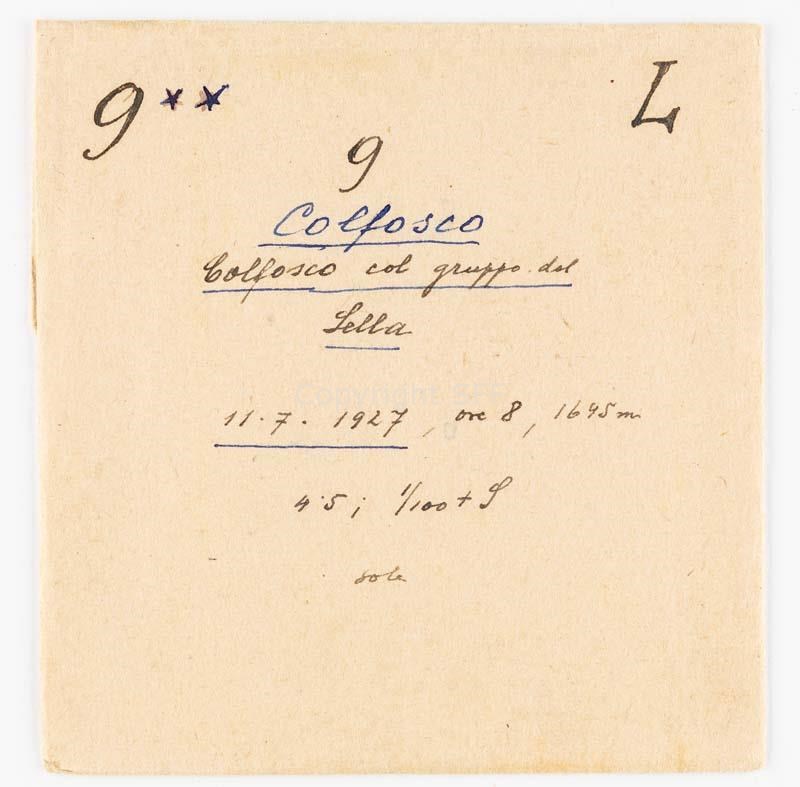 9** L
9
Colfosco
Colfosco col gruppo del
Sella
11.7.1927, ore 8, 1645m
4.5; 1/100 + S
sole